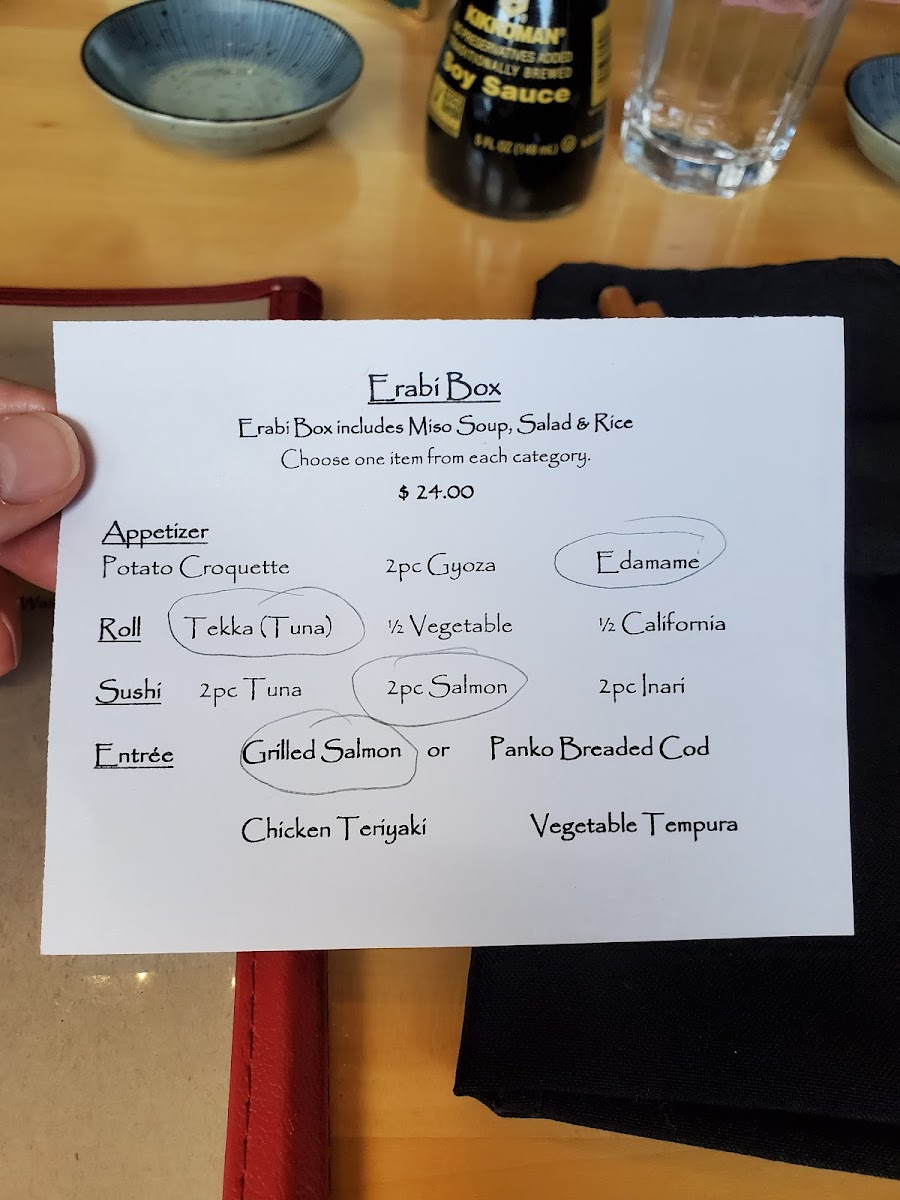 KIKKOMAN®
NO PRESERVATIVES ADDED
TRADITIONALLY BREWED
Soy Sauce
5 FL OZ (148 mL)
Erabi Box
Erabi Box includes Miso Soup, Salad & Rice
Choose one item from each category.
$ 24.00
Appetizer
Potato Croquette 2pc Gyoza Edamame
Roll Tekka (Tuna) ½ Vegetable ½ California
Sushi 2pc Tuna 2pc Salmon 2pc Inari
Entrée Grilled Salmon or Panko Breaded Cod
Chicken Teriyaki Vegetable Tempura